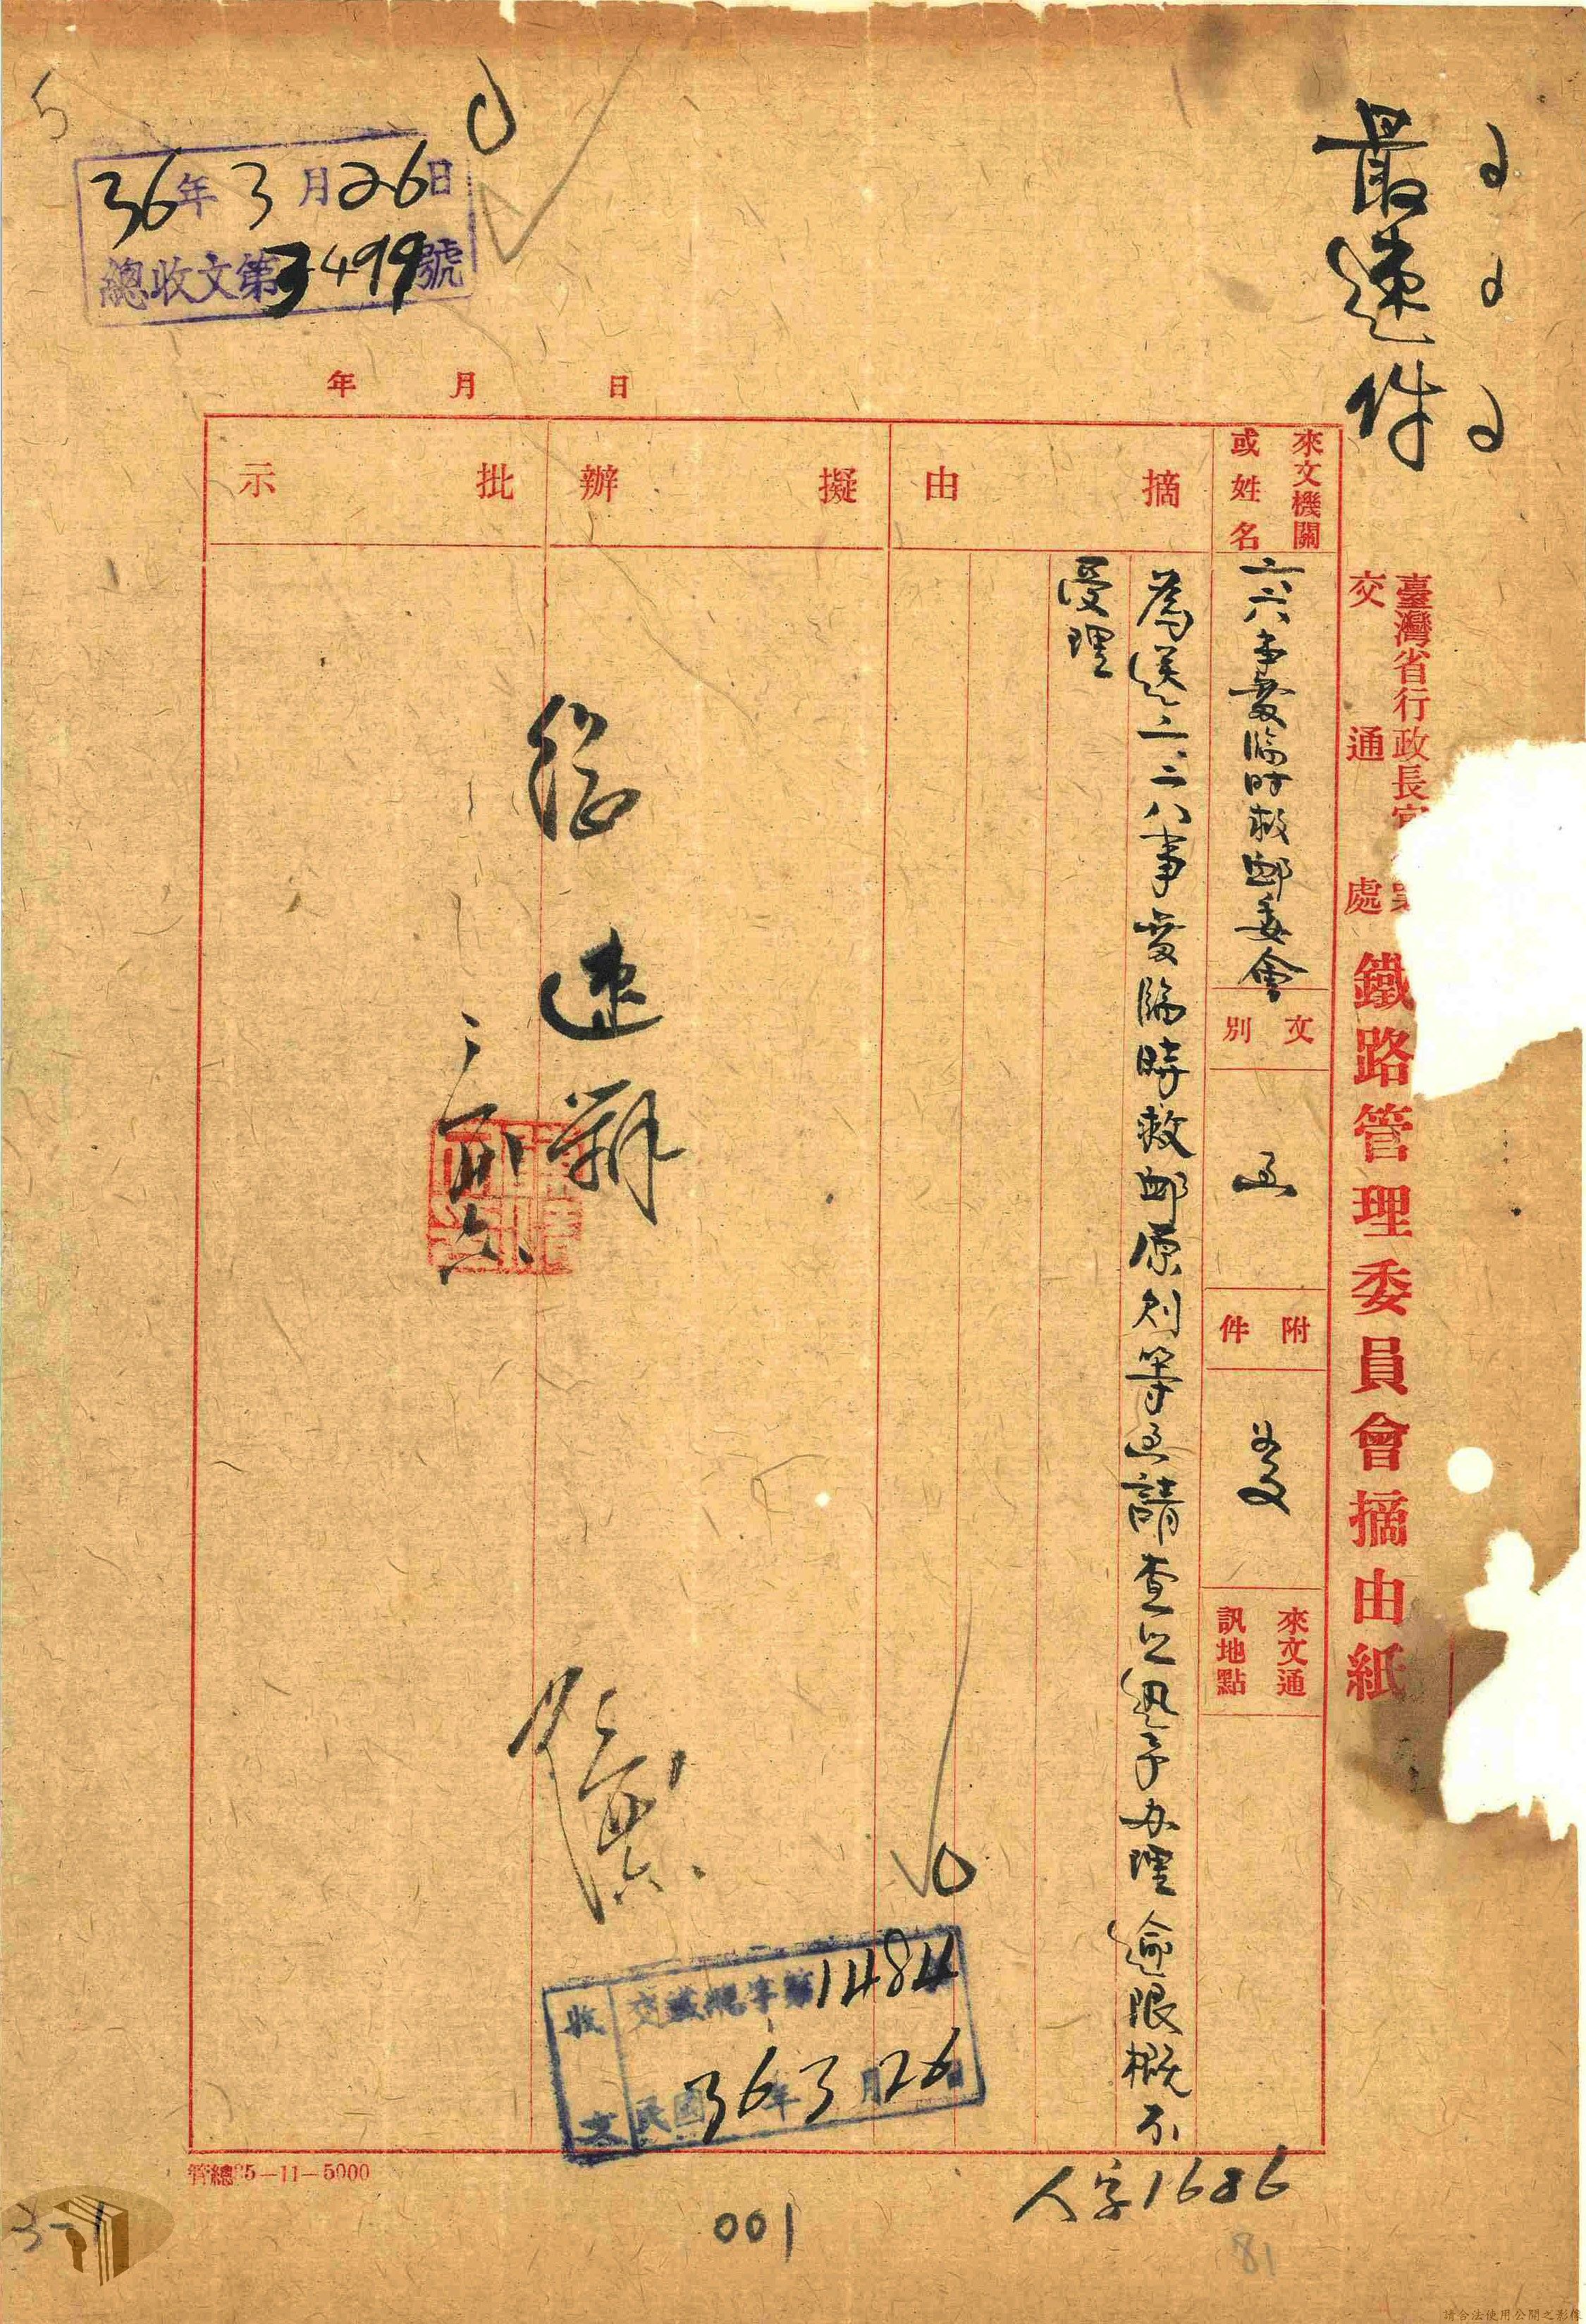 最速件
臺灣省行政長官
交通處
鐵路管理委員會摘由紙
36年3月26日
總收文第3499號
年 月 日
來文機關
或姓名
二二八事變臨時救卹委會
文別
函
附件
來文通
訊地點
摘由
為送二、二八事變臨時救卹原則等函請查照迅予办理逾限概不
受理
擬辦
批示
從速辦
收文
第1484
民國36年3月26日
管總35-11-5000
人字1686
001
81
3-1
5
請合法使用公開之影像